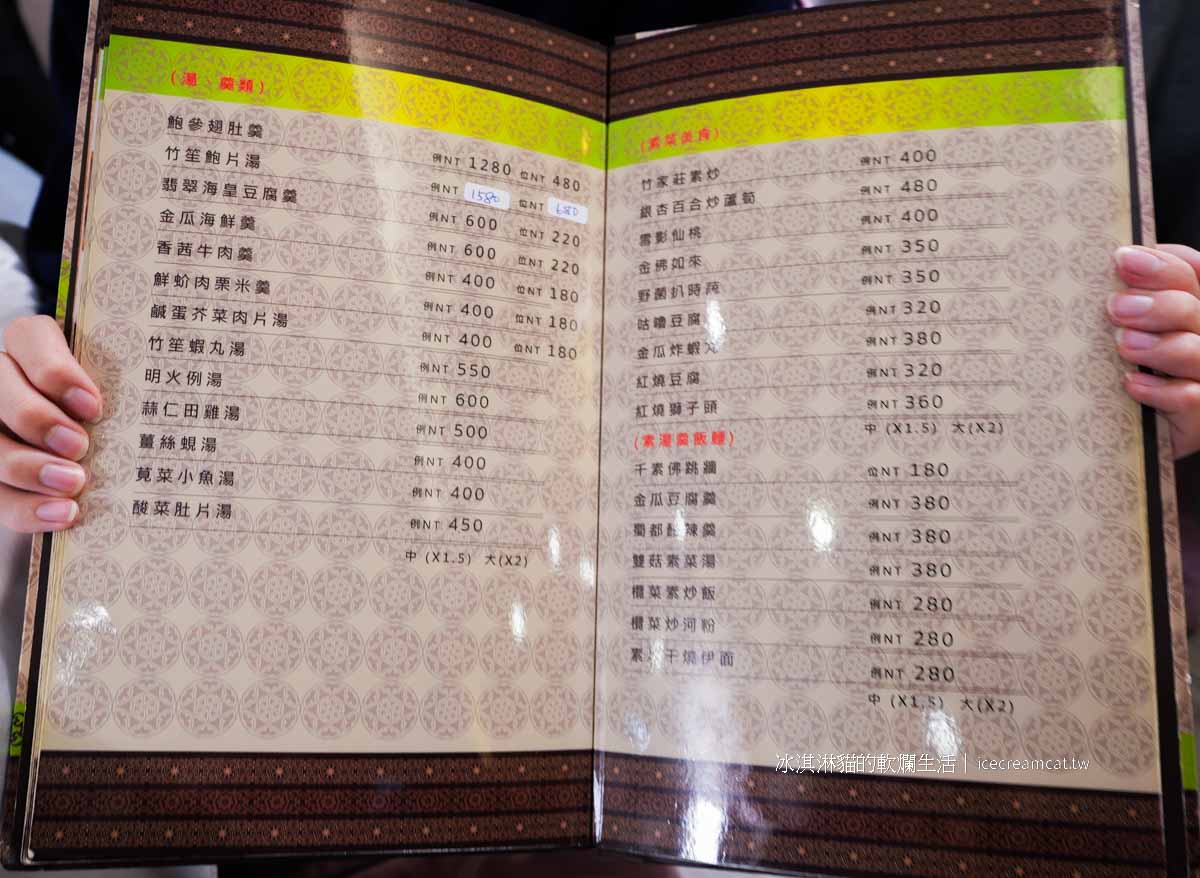 (湯、羹類)
鮑參翅肚羹 例NT 1280 位NT 480
竹笙鮑片湯 例NT 1580 位NT 680
翡翠海皇豆腐羹 例NT 600 位NT 220
金瓜海鮮羹 例NT 600 位NT 220
香茜牛肉羹 例NT 400 位NT 180
鮮蚧肉栗米羹 例NT 400 位NT 180
鹹蛋芥菜肉片湯 例NT 400 位NT 180
竹笙蝦丸湯 例NT 550
明火例湯 例NT 600
蒜仁田雞湯 例NT 500
薑絲蜆湯 例NT 400
莧菜小魚湯 例NT 400
酸菜肚片湯 例NT 450
中 (X1.5) 大(X2)
(素菜美食)
竹家莊素炒 例NT 400
銀杏百合炒蘆筍 例NT 480
雪影仙桃 例NT 400
金佛如來 例NT 350
野菌扒時蔬 例NT 350
咕嚕豆腐 例NT 320
金瓜炸蝦丸 例NT 380
紅燒豆腐 例NT 320
紅燒獅子頭 例NT 360
中 (X1.5) 大(X2)
(素湯羹飯麵)
千素佛跳牆 位NT 180
金瓜豆腐羹 例NT 380
蜀都酸辣羹 例NT 380
雙菇素菜湯 例NT 380
欖菜素炒飯 例NT 280
欖菜炒河粉 例NT 280
素 干燒伊面 例NT 280
中 (X1.5) 大(X2)
冰淇淋貓的軟爛生活 | icecreamcat.tw